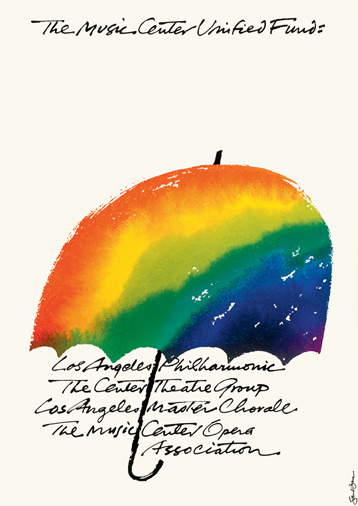 The Music Center Unified Fund:
Los Angeles Philharmonic
The Center Theatre Group
Los Angeles Master Chorale
The Music Center Opera
Association